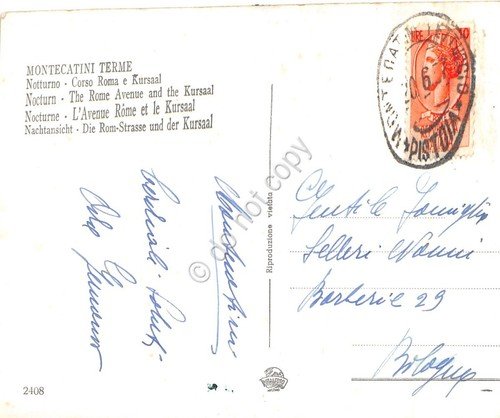 MONTECATINI TERME
Notturno - Corso Roma e Kursaal
Nocturn - The Rome Avenue and the Kursaal
Nocturne - L'Avenue Rôme et le Kursaal
Nachtansicht - Die Rom-Strasse und der Kursaal
cordiali saluti
Riproduzione vietata
do not copy
LIRE
PISTOIA
Gentile Famiglia
Selleri Nanni
Barberie 29
Bologna
2408